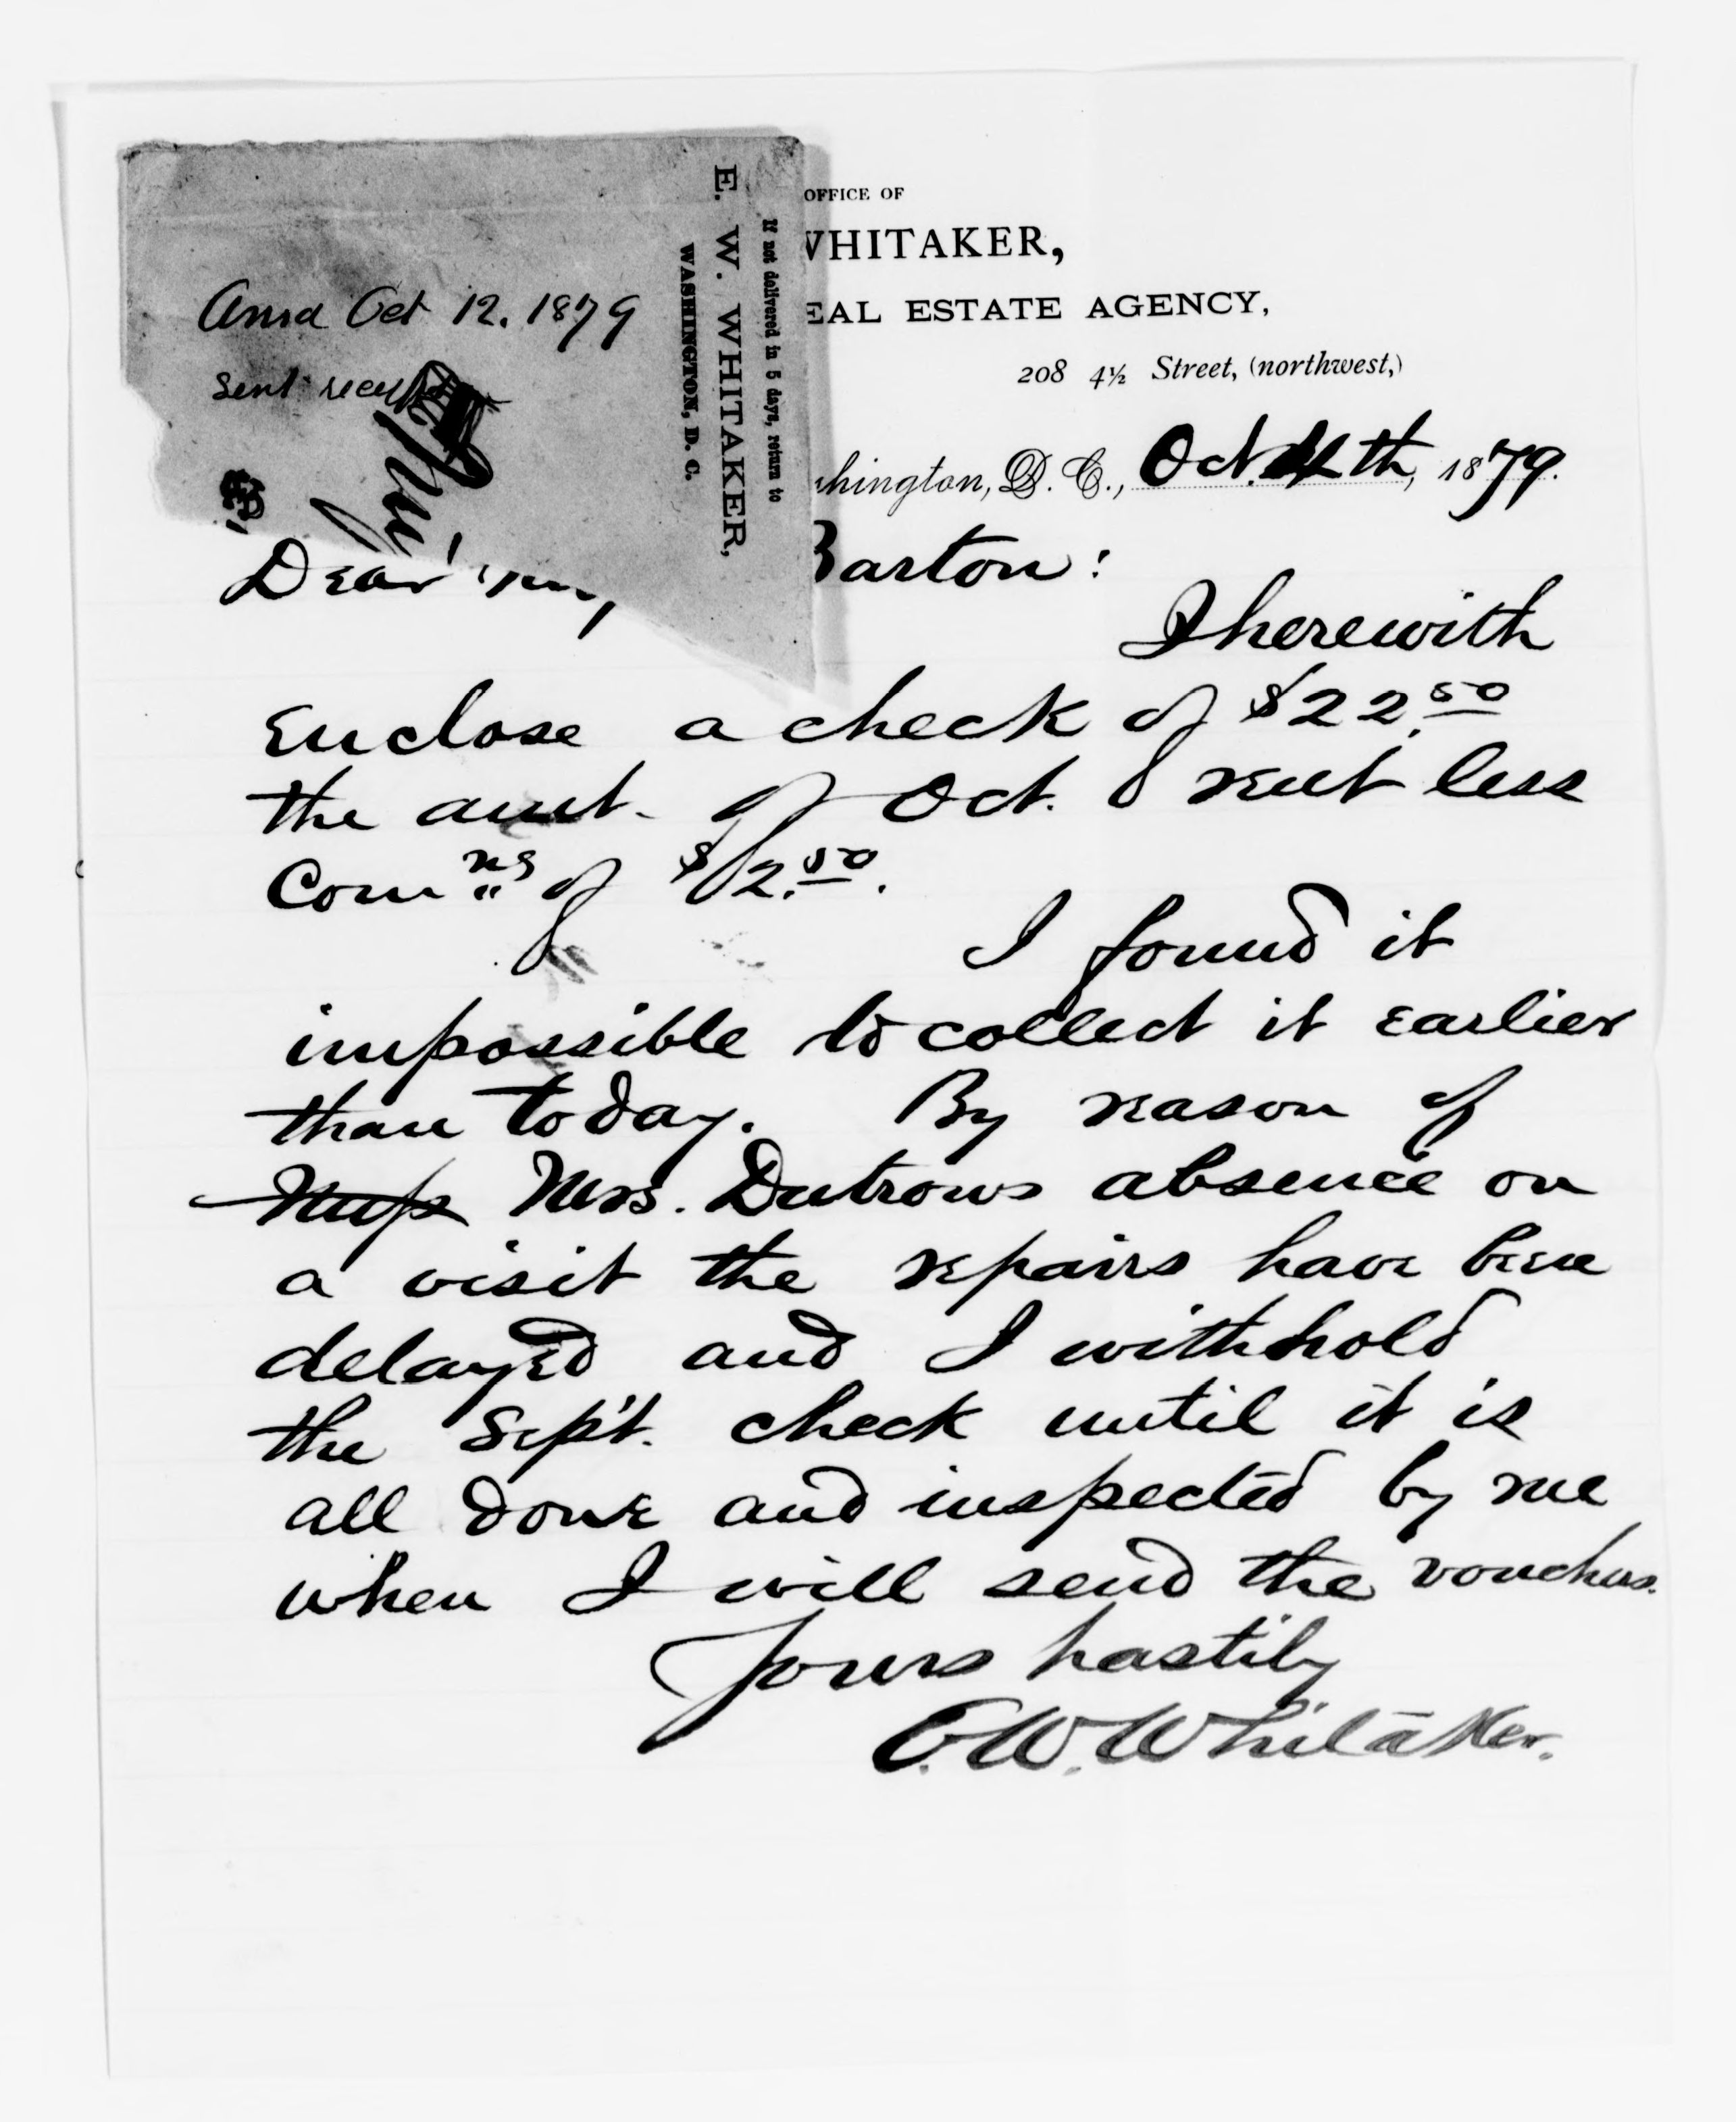 If not delivered in 5 days, return to
E. W. WHITAKER,
WASHINGTON, D. C.
Ansd Oct 12. 1879
Sent receipt
OFFICE OF
WHITAKER,
EAL ESTATE AGENCY,
208 4½ Street, (northwest,)
shington, D. C., Oct. 4th, 1879.
Dear Barton:
I herewith
Enclose a check of $22.50
the amt. of Oct. rent less
Comns of $2.50.
I found it
impossible to collect it earlier
than today. By reason of
Mrs. Dutrows absence on
a visit the repairs have been
delayed and I withhold
the Sept. check until it is
all done and inspected by me
when I will send the vouchers.
Yours hastily
E. W. Whitaker.